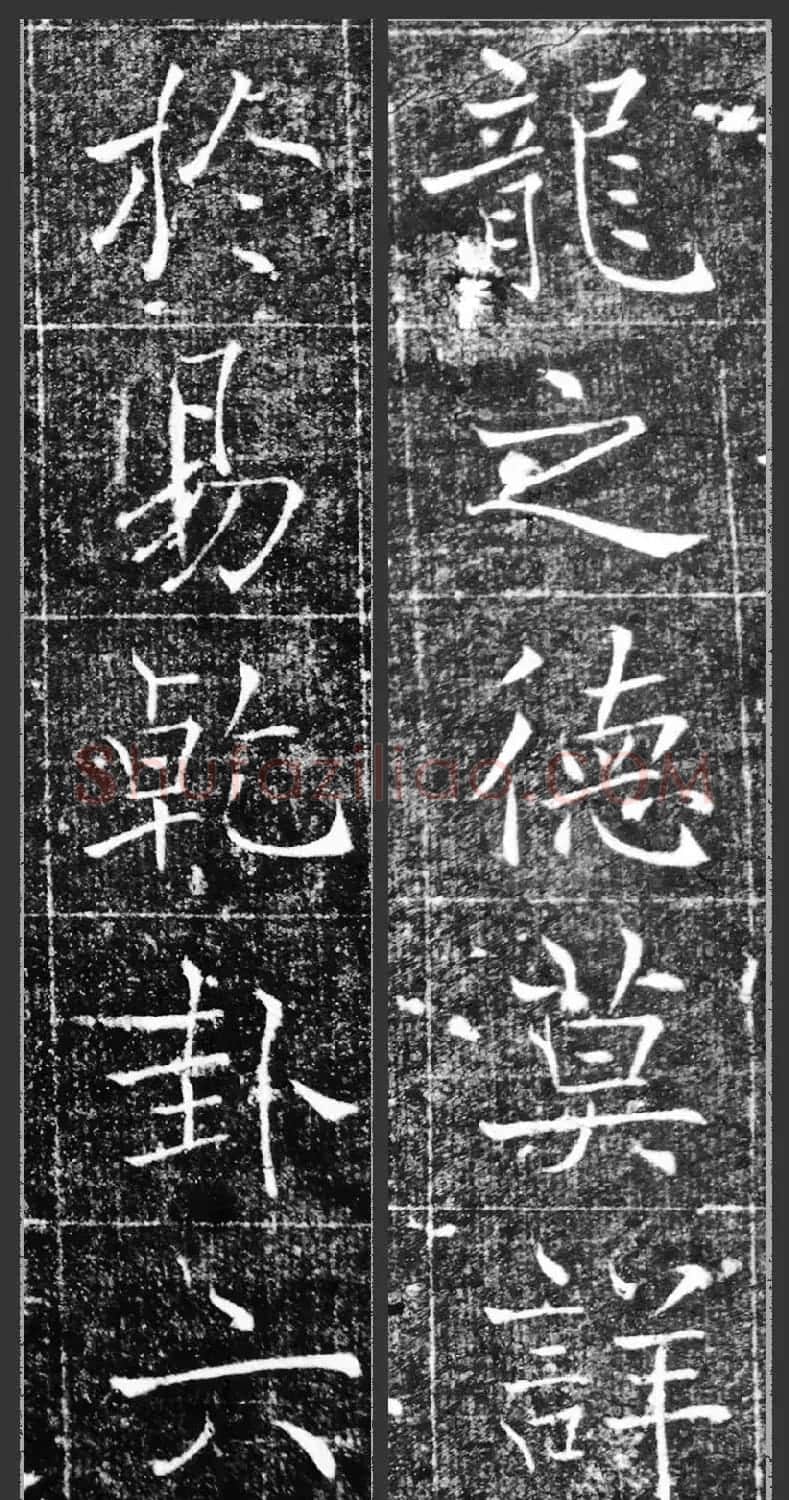 龍之德莫詳
於易乾卦六
Shufaziliao.COM